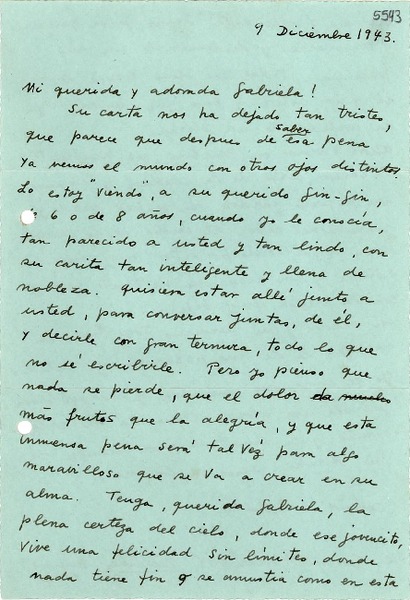 5543
9 Diciembre 1943.
Mi querida y adorada Gabriela!
Su carta nos ha dejado tan tristes,
que parece que despues de saber esa pena
ya vemos el mundo con otros ojos distintos.
Lo estoy "viendo", a su querido Yin-Yin,
6 o de 8 años, cuando yo le conocía,
tan parecido a usted y tan lindo, con
su carita tan inteligente y llena de
nobleza. Quisiera estar allé junto a
usted, para conversar juntas, de él,
y decirle con gran ternura, todo lo que
no sé escribirle. Pero yo pienso que
nada se pierde, que el dolor da muchos
más frutos que la alegría, y que esta
inmensa pena será tal vez para algo
maravilloso que se va a crear en su
alma. Tenga, querida Gabriela, la
plena certeza del cielo, donde ese jovencito,
vive una felicidad sin límites, donde
nada tiene fin y se amustia como en esta